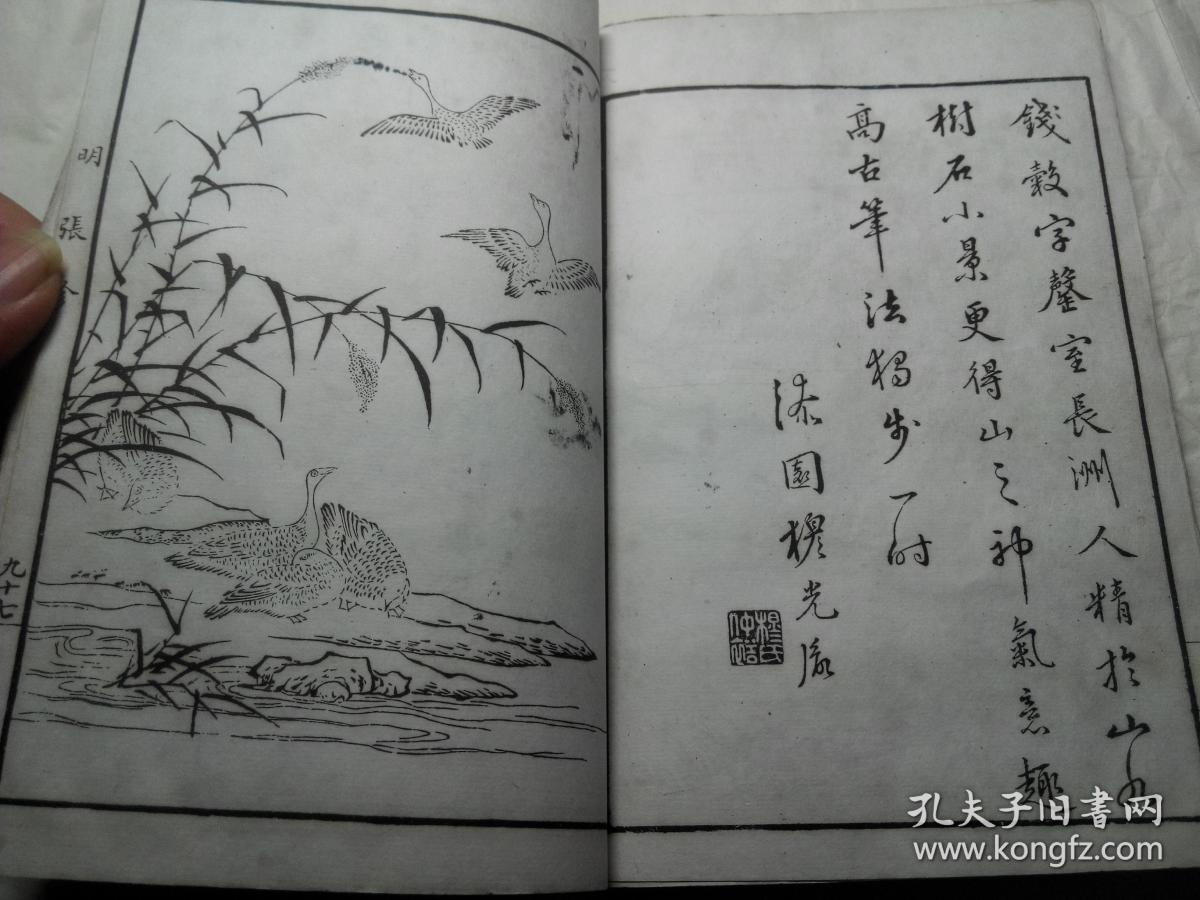 錢穀字罄室長洲人精於山水
樹石小景更得山之神氣意趣
高古筆法獨步一時
漆園穆光胤
穆氏仲裕
明
張
九十七
孔夫子旧书网
www.kongfz.com